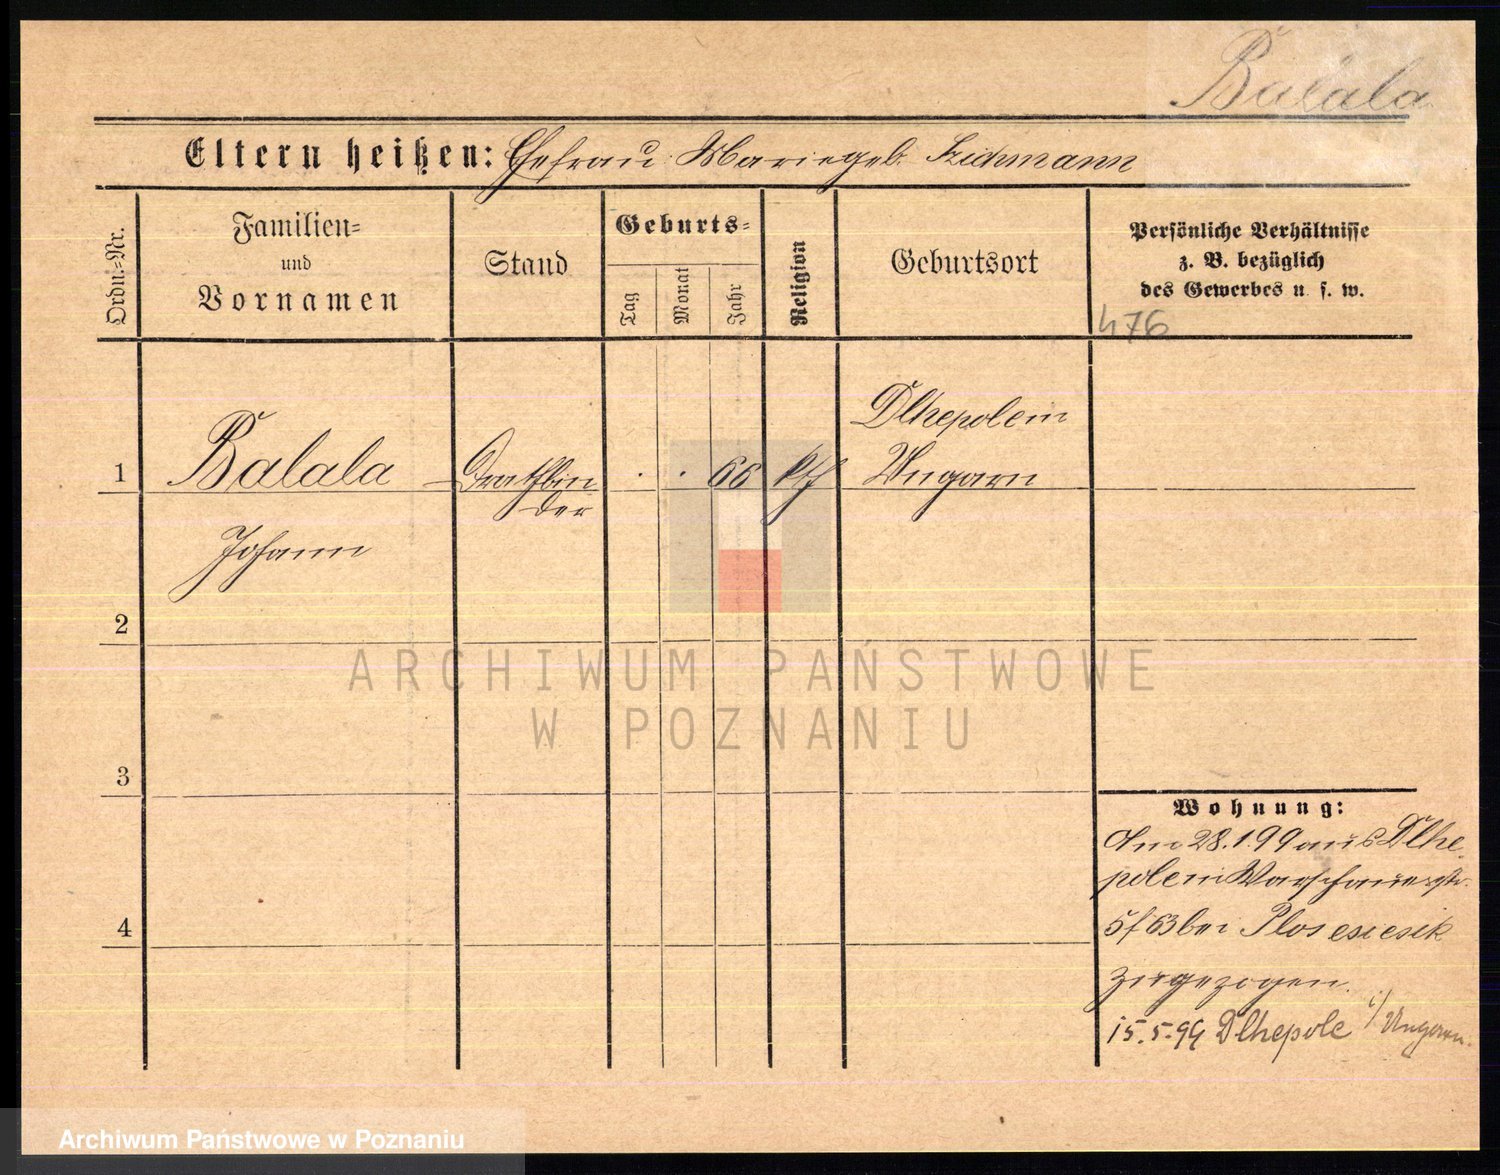 Balala
Eltern heißen: Ehefrau Marie geb. Szichmann
Ordn.-Nr.
Familien-
und
Vornamen
Stand
Geburts-
Tag
Monat
Jahr
Religion
Geburtsort
Persönliche Verhältnisse
z. B. bezüglich
des Gewerbes u. s. w.
476
Dlhepole in
1 Balala Drathbin 66 kth Ungarn
der
Johann
2
ARCHIWUM PAŃSTWOWE
W POZNANIU
3
Wohnung:
Am 28.1.99 aus Dlhe
pole in Warschauerstr.
4
5/63 bei
zugezogen.
15.5.99 Dlhepole i/Ungarn.
Archiwum Państwowe w Poznaniu